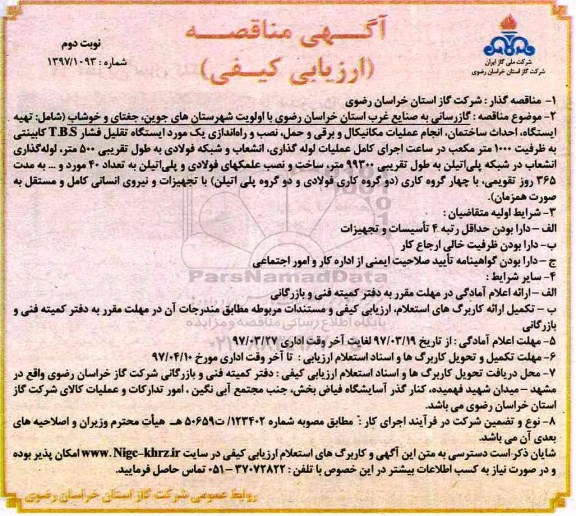 آگـهـی مناقصـه
(ارزیابی کیـفی)
نوبت دوم
شماره : ۱۳۹۷/۱۰۹۳
شرکت ملی گاز ایران
شرکت گاز استان خراسان رضوی
۱- مناقصه گذار : شرکت گاز استان خراسان رضوی
۲- موضوع مناقصه : گازرسانی به صنایع غرب استان خراسان رضوی با اولویت شهرستان های جوین، جغتای و خوشاب (شامل: تهیه
ایستگاه، احداث ساختمان، انجام عملیات مکانیکال و برقی و حمل، نصب و راه‌اندازی یک مورد ایستگاه تقلیل فشار T.B.S کابینتی
به ظرفیت ۱۰۰۰ متر مکعب در ساعت اجرای کامل عملیات لوله گذاری، انشعاب و شبکه فولادی به طول تقریبی ۵۰۰ متر، لوله‌گذاری
انشعاب در شبکه پلی‌اتیلن به طول تقریبی ۹۹۳۰۰ متر، ساخت و نصب علمکهای فولادی و پلی‌اتیلن به تعداد ۴۰ مورد و ... به مدت
۳۶۵ روز تقویمی، با چهار گروه کاری (دو گروه کاری فولادی و دو گروه پلی اتیلن) با تجهیزات و نیروی انسانی کامل و مستقل به
صورت همزمان).
۳- شرایط اولیه متقاضیان :
الف - دارا بودن حداقل رتبه ۴ تأسیسات و تجهیزات
ب- دارا بودن ظرفیت خالی ارجاع کار
ج - دارا بودن گواهینامه تأیید صلاحیت ایمنی از اداره کار و امور اجتماعی
۴- سایر شرایط :
الف - ارائه اعلام آمادگی در مهلت مقرر به دفتر کمیته فنی و بازرگانی
ب - تکمیل ارائه کاربرگ های استعلام، ارزیابی کیفی و مستندات مربوطه مطابق مندرجات آن در مهلت مقرر به دفتر کمیته فنی و
بازرگانی
۵- مهلت اعلام آمادگی : از تاریخ ۹۷/۰۳/۱۹ لغایت آخر وقت اداری ۹۷/۰۳/۲۷
۶- مهلت تکمیل و تحویل کاربرگ ها و اسناد استعلام ارزیابی : تا آخر وقت اداری مورخ ۹۷/۰۴/۱۰
۷- محل دریافت تحویل کاربرگ ها و اسناد استعلام ارزیابی کیفی : دفتر کمیته فنی و بازرگانی شرکت گاز خراسان رضوی واقع در
مشهد - میدان شهید فهمیده، کنار گذر آسایشگاه فیاض بخش، جنب مجتمع آبی نگین ، امور تدارکات و عملیات کالای شرکت گاز
استان خراسان رضوی می باشد.
۸- نوع و تضمین شرکت در فرآیند اجرای کار : مطابق مصوبه شماره ۱۲۳۴۰۲/ ت۵۰۶۵۹ هـ هیأت محترم وزیران و اصلاحیه های
بعدی آن می باشد.
شایان ذکر است دسترسی به متن این آگهی و کاربرگ های استعلام ارزیابی کیفی در سایت www.Nigc-khrz.ir امکان پذیر بوده
و در صورت نیاز به کسب اطلاعات بیشتر در این خصوص با تلفن : ۳۷۰۷۲۸۲۲ - ۰۵۱ تماس حاصل فرمایید.
روابط عمومی شرکت گاز استان خراسان رضوی
ParsNamadData